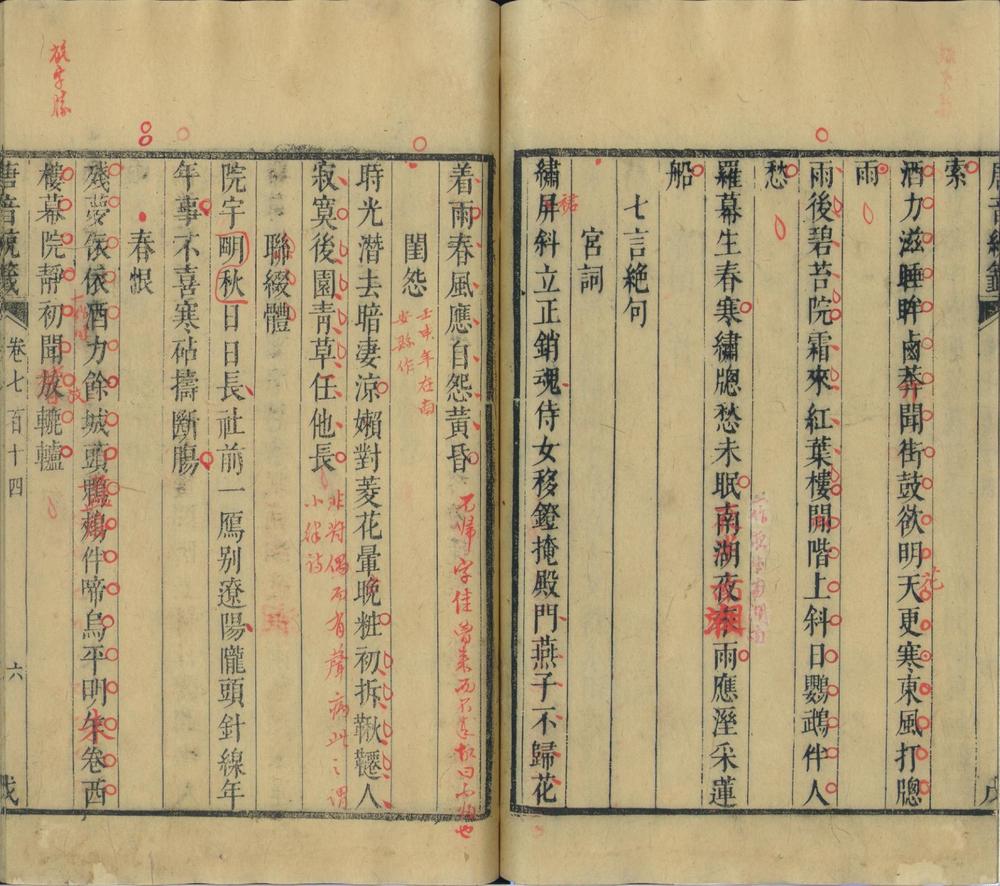 索
酒力滋睡眸鹵莽聞街鼓欲明天更寒東風打牕
雨
雨後碧苔院霜來紅葉樓閒階上斜日鸚鵡伴人
愁
羅幕生春寒繡牕愁未眠南湖夜來雨應溼采蓮
船
七言絕句
宮詞
繡屏斜立正銷魂侍女移鐙掩殿門燕子不歸花
着雨春風應自怨黃昏
閨怨
壬申年在南
時光潛去暗凄涼嬾對菱花暈晚粧初拆鞦韆人
寂寞後園靑草任他長
非對偶而有聲病此之謂
小律詩
聯綴體
院宇秋明日日長社前一鴈别遼陽隴頭針線年
年事不喜寒砧擣斷腸
春恨
殘夢依依酒力餘城頭鼓角伴啼烏平明朱卷西
樓幕院靜初聞放轆轤
卷七百十四
六